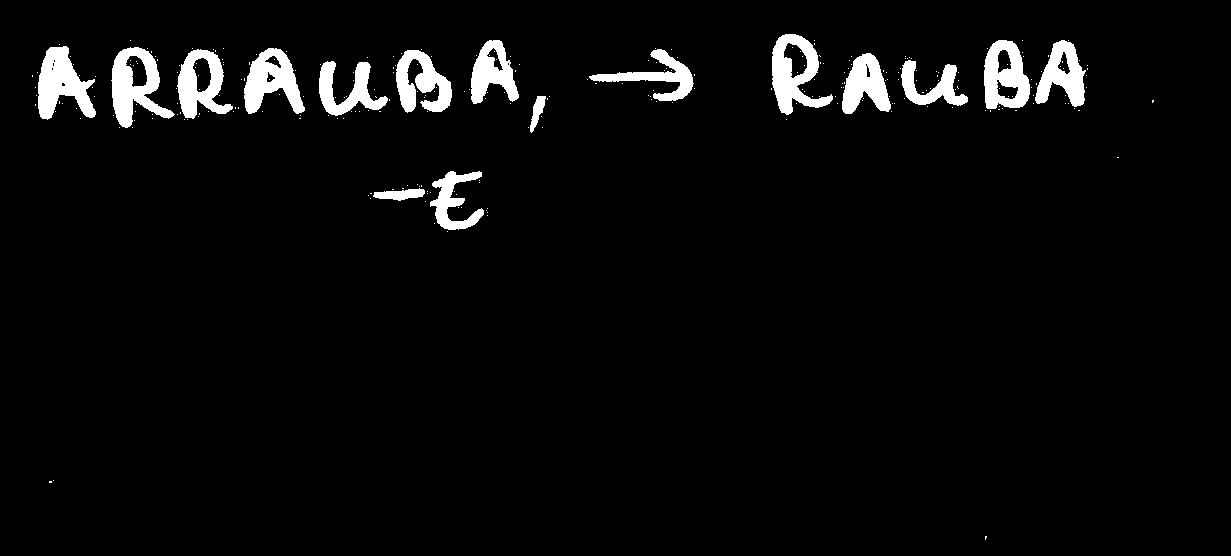 ARRAUBA, → RAUBA
-E